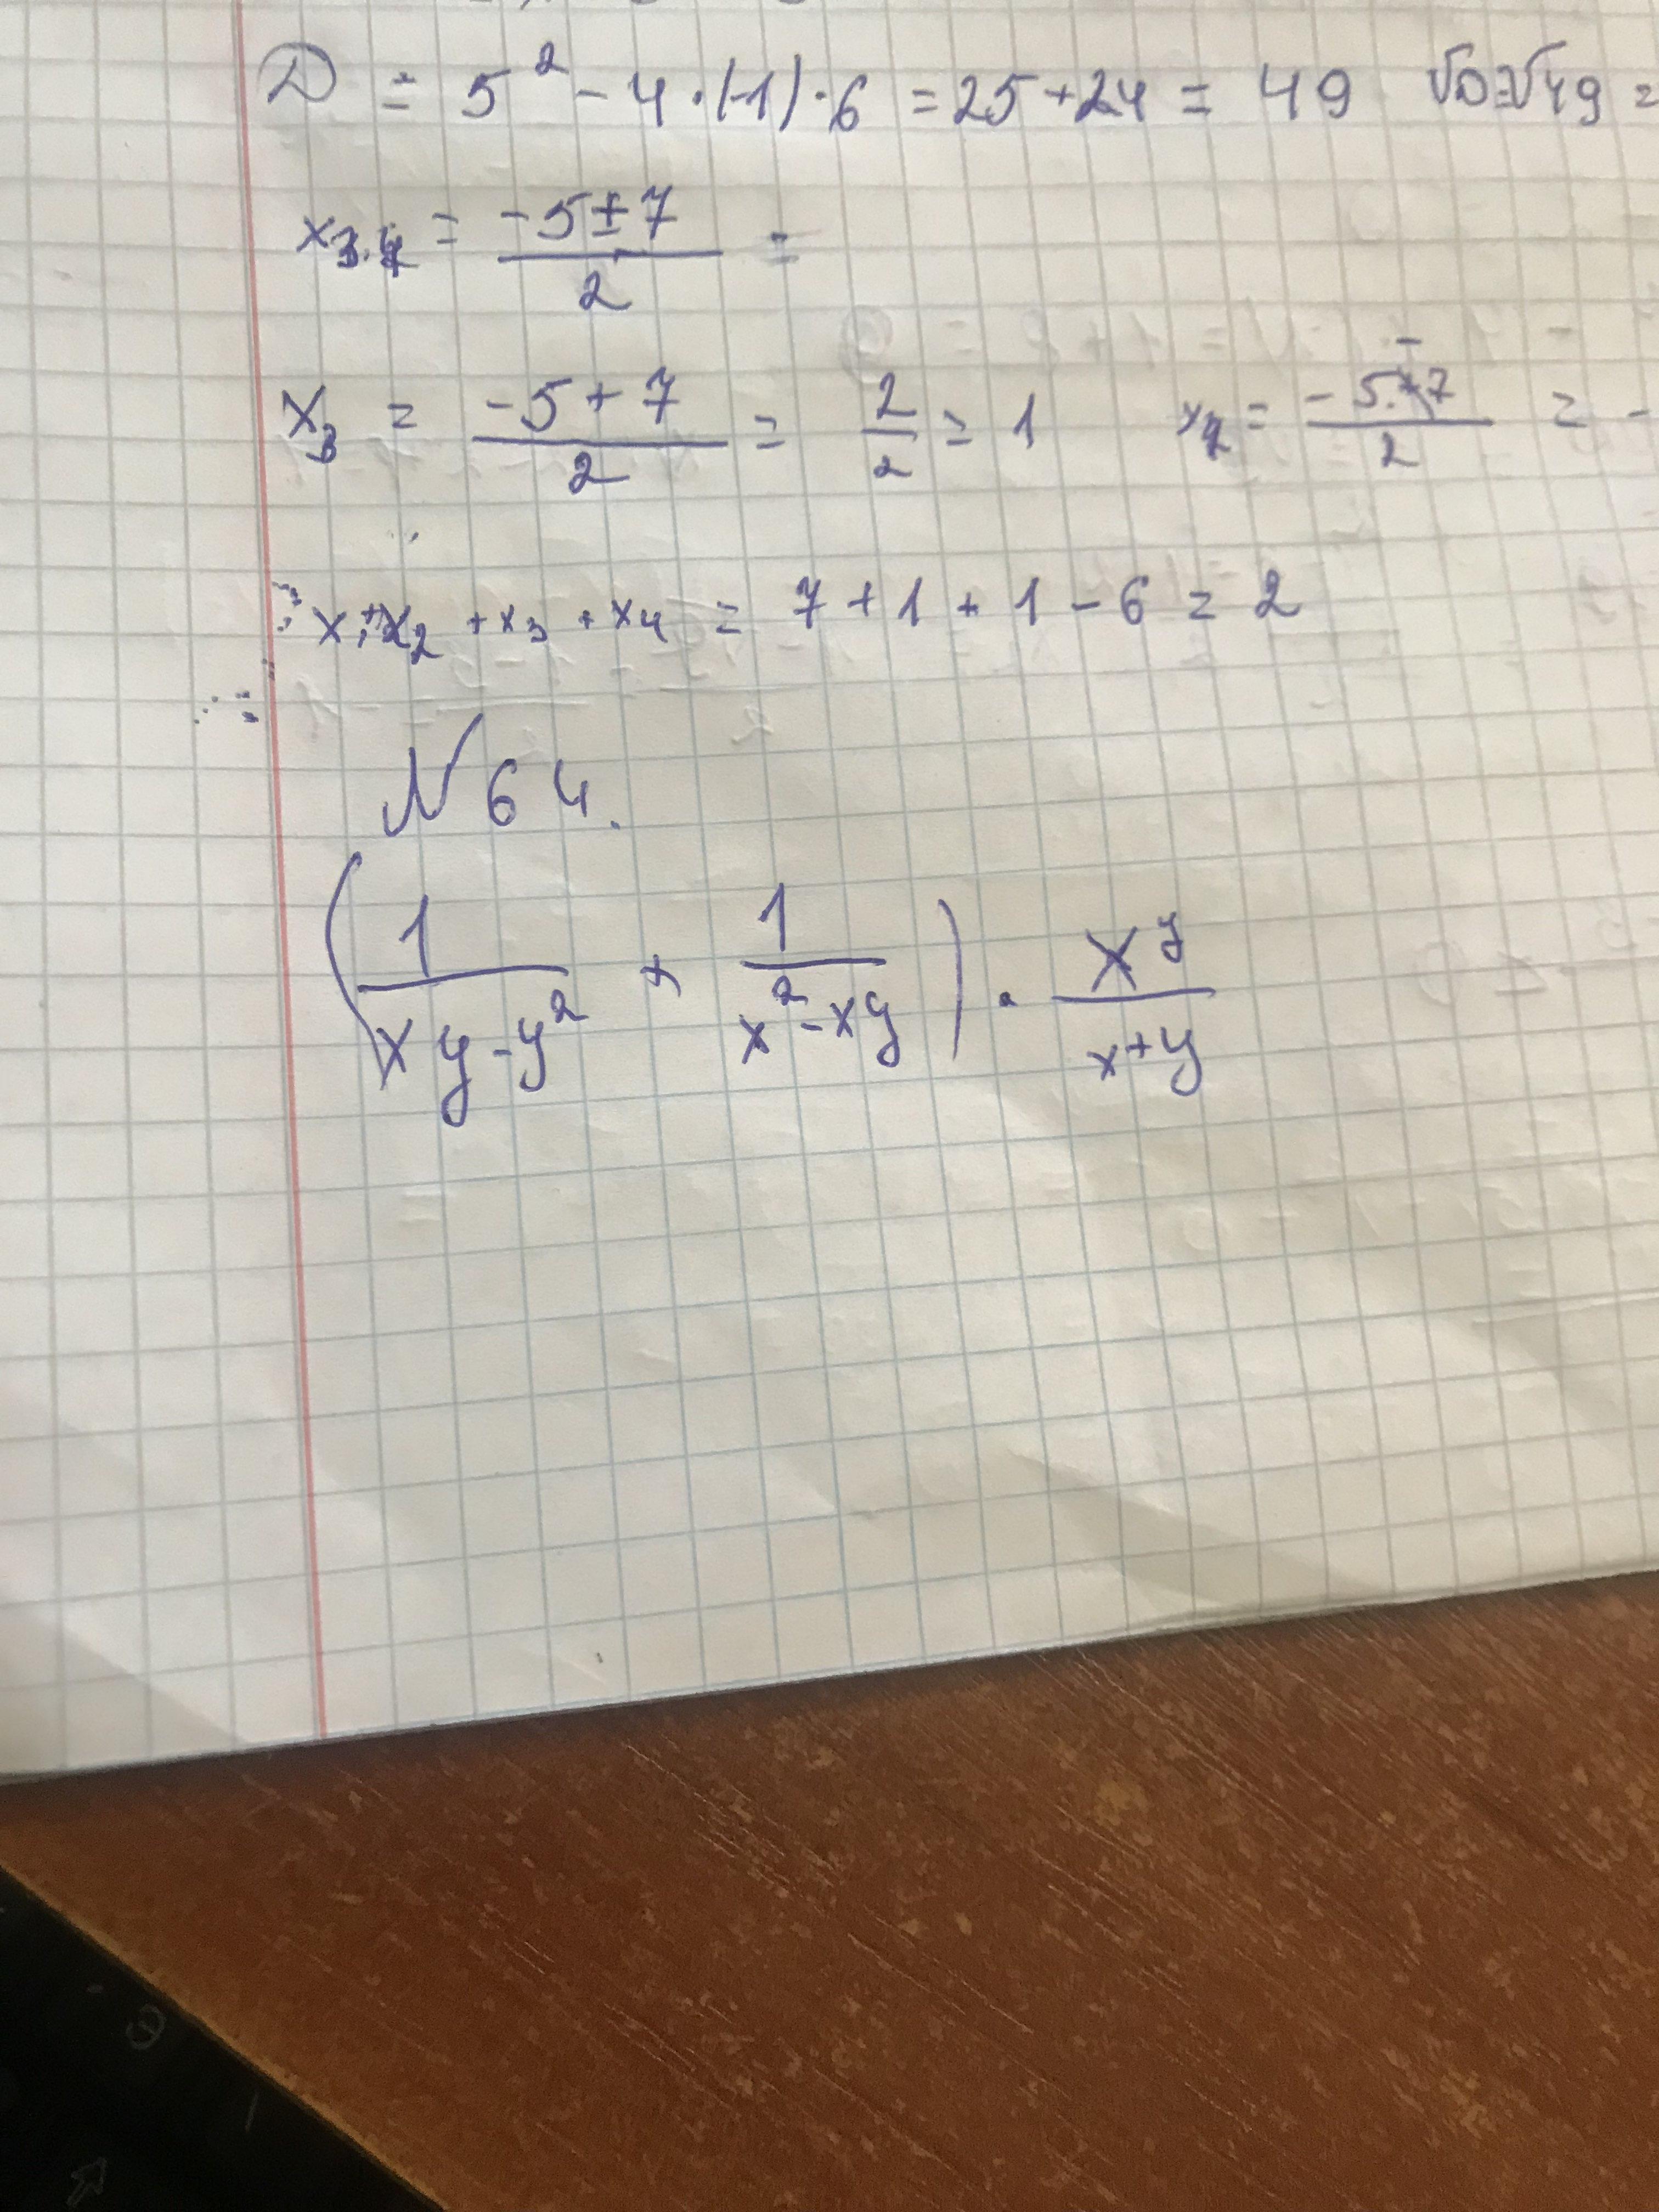 D = 5² - 4 · (-1) · 6 = 25 + 24 = 49 √D = √49 =
x₃.₄ = (-5 ± 7)/2 =
x₃ = (-5 + 7)/2 = 2/2 = 1 x₄ = (-5 - 7)/2 = -
x₁ + x₂ + x₃ + x₄ = 7 + 1 + 1 - 6 = 2
N 64.
(1/(xy - y²) + 1/(x² - xy)) · xy/(x + y)